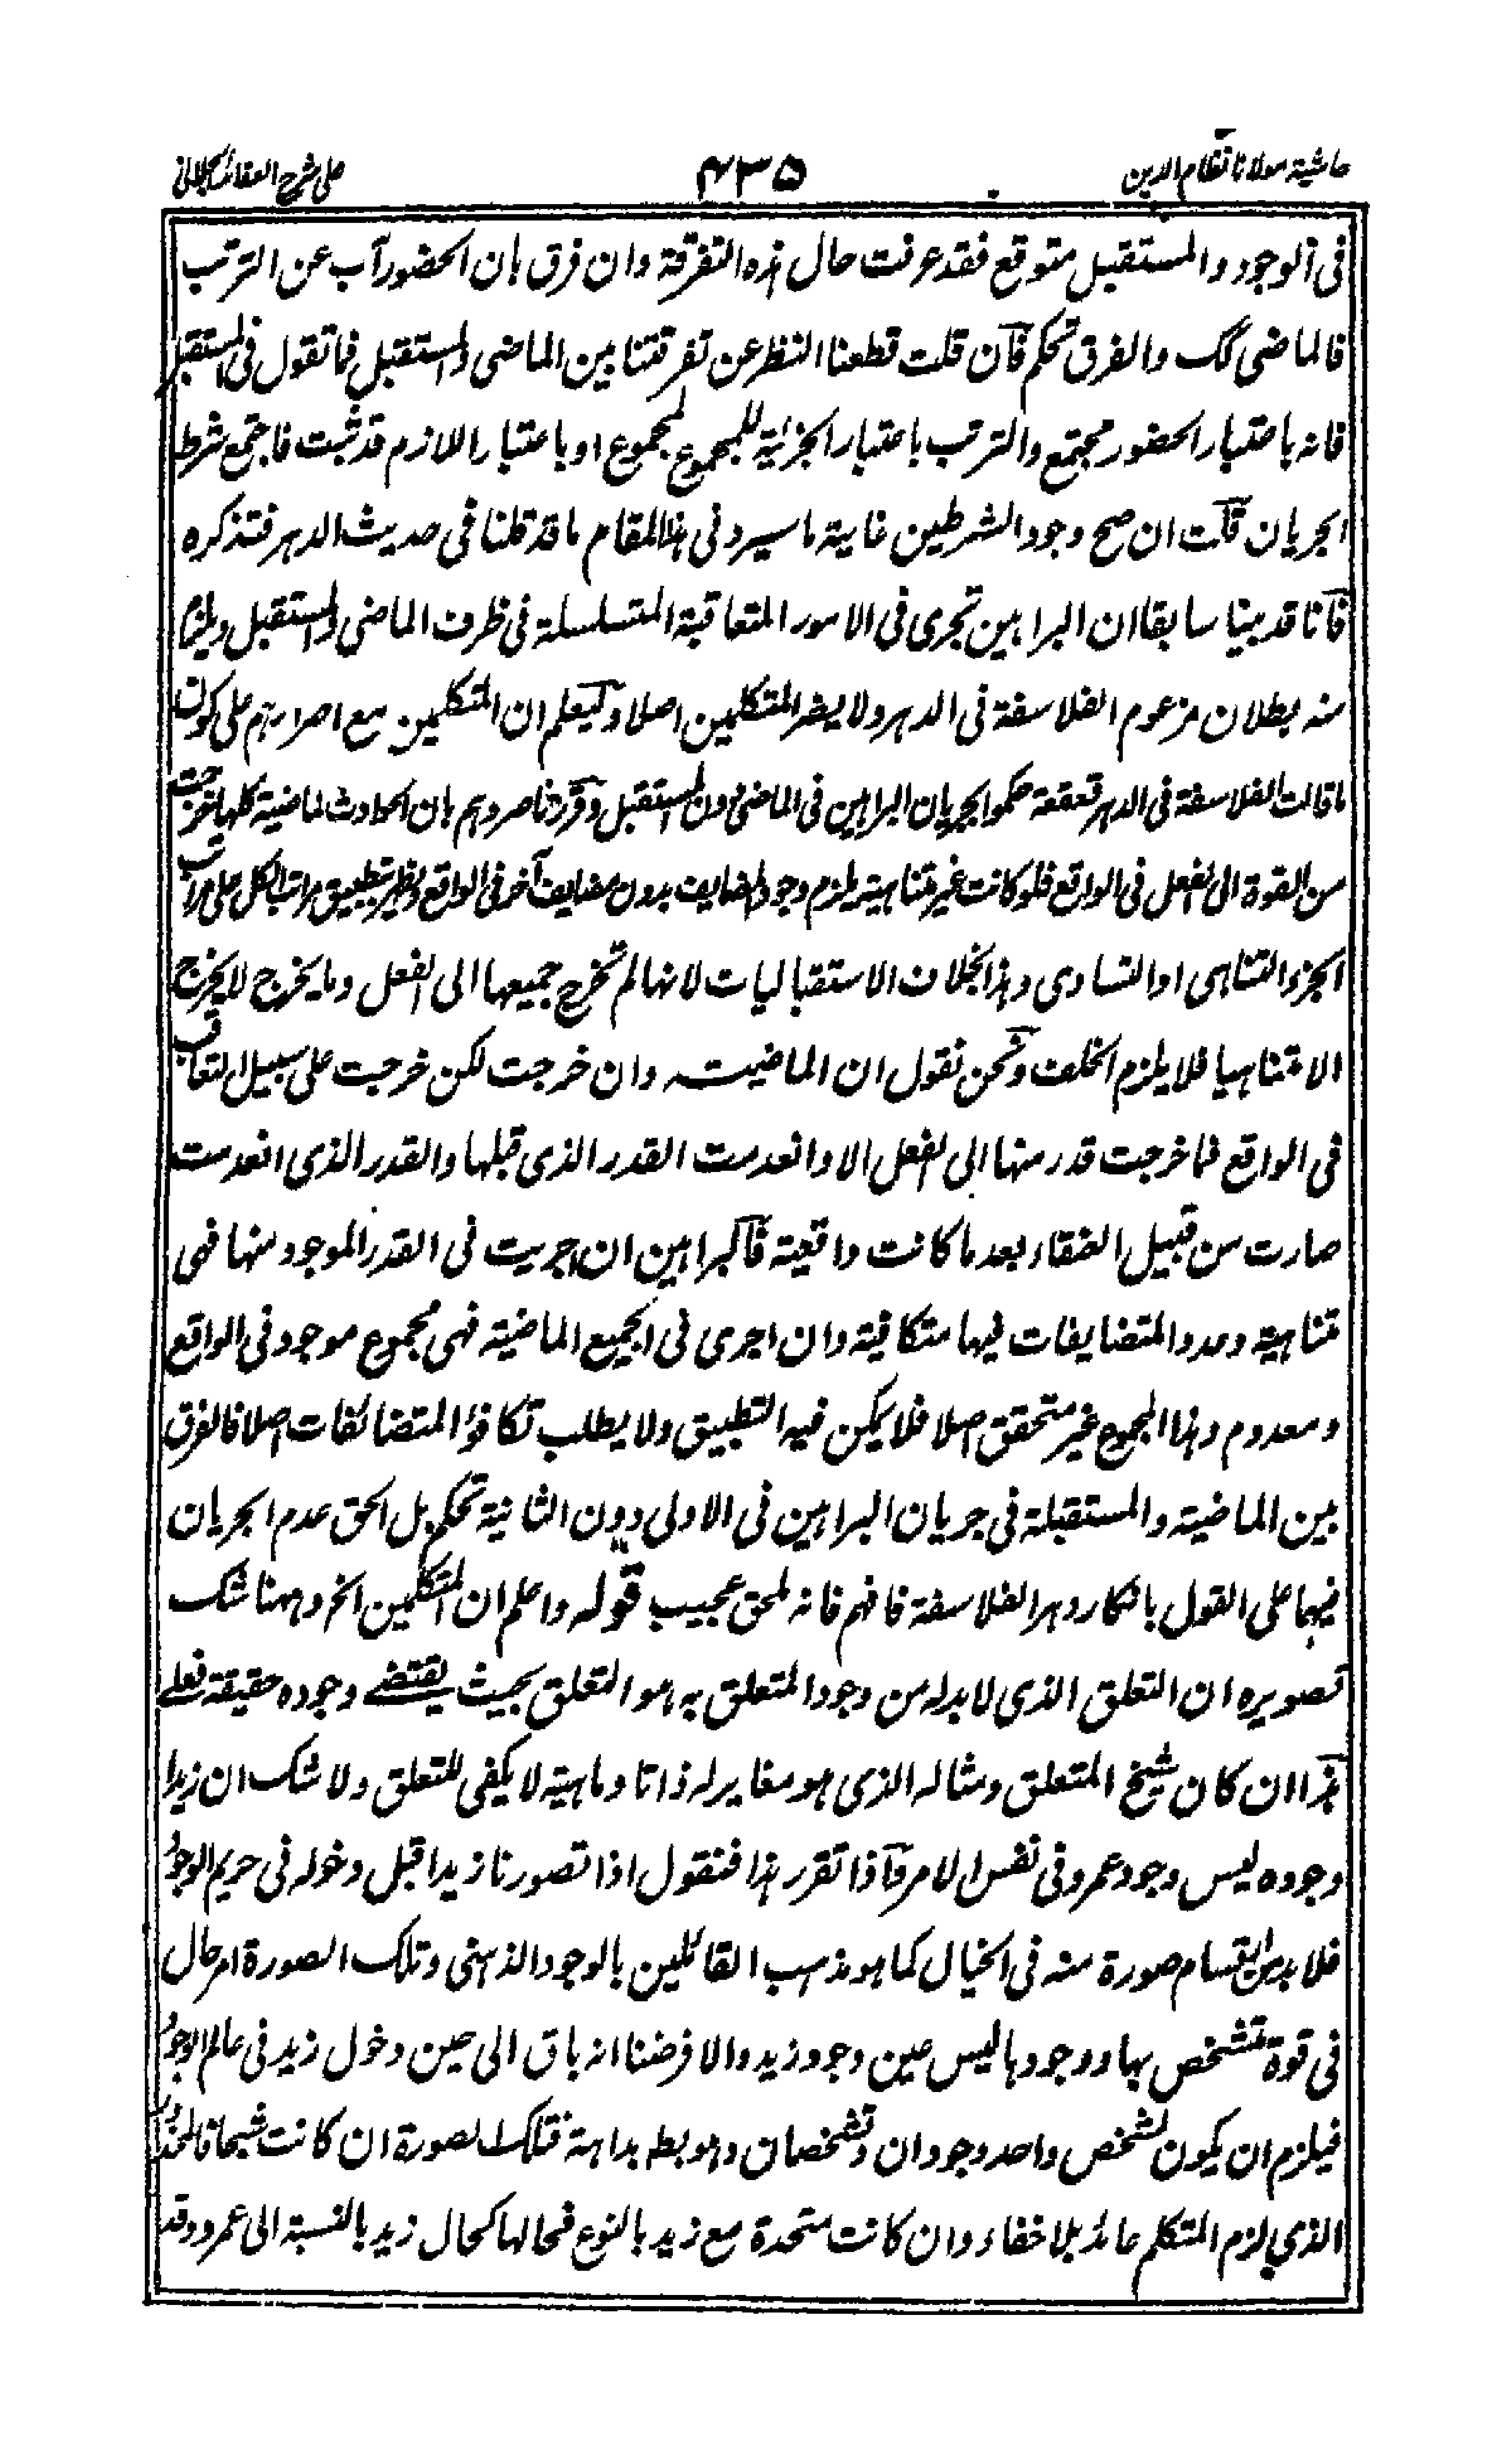 حاشية مولانا نظام الدين
٤٣٥
على شرح العقائد الجلالي
فى الوجود والمستقبل متوقع فقد عرفت حال هذه التفرقة وان فرق بان الحضور آب عن الترتب
فالماضى كك والفرق تحكم فان قلت قطعنا النظر عن تفرقتنا بين الماضى والمستقبل فما تقول فى المستقبل
فانه باعتبار الحضور مجتمع والترتب باعتبار الجزئية للمجموع لمجموع او باعتبار اللازم قد ثبت فاجتمع شرط
الجريان قلت ان صح وجود الشرطين غاية ما سيرد فى هذا المقام ما قد قلنا فى حديث الدهر فتذكره
فانا قد بينا سابقا ان البراهين تجرى فى الامور المتعاقبة المتسلسلة فى ظرف الماضى والمستقبل ويلزم
منه بطلان مزعوم الفلاسفة فى الدهر ولا يضر المتكلمين اصلا وليعلم ان المتكلمين مع اصرارهم على كون
ما قالت الفلاسفة فى الدهر قعقعة حكموا بجريان البراهين فى الماضى دون المستقبل وقرر ناصروهم بان الحوادث الماضية كلها خرجت
من القوة الى الفعل فى الواقع فلو كانت غير متناهية يلزم وجود المضايف بدون مضايف آخر فى الواقع ويظهر بتطبيق مراتب الكل على مراتب
الجزء التناهى او التساوى وهذا بخلاف الاستقباليات لانها لم تخرج جميعها الى الفعل وما يخرج لا يخرج
الا متناهيا فلا يلزم الخلف ونحن نقول ان الماضية وان خرجت لكن خرجت على سبيل التعاقب
فى الواقع فما خرجت قدر منها الى الفعل الا وانعدمت القدر الذى قبلها والقدر الذى انعدمت
صارت من قبيل العنقاء بعد ما كانت واقعية فالبراهين ان اجريت فى القدر الموجود منها فهى
متناهية وعدد المتضايفات فيها متكافية وان اجرى فى الجميع الماضية فهى مجموع موجود فى الواقع
ومعدوم وهذا المجموع غير متحقق اصلا فلا يمكن فيه التطبيق ولا يطلب تكافؤ المتضائفات اصلا فالفرق
بين الماضية والمستقبلة فى جريان البراهين فى الاولى دون الثانية تحكم بل الحق عدم الجريان
فيهما على القول بانكار دهر الفلاسفة فافهم فانه لحق عجيب قوله واعلم ان المتكلمين الخ وههنا شك
تصويره ان التعلق الذى لا بد له من وجود المتعلق به هو التعلق بحيث يقتضى وجوده حقيقة فعلى
هذا ان كان شبح المتعلق ومثاله الذى هو مغاير له ذاتا وماهية لا يكفى للتعلق ولا شك ان زيدا
وجوده ليس وجود عمرو فى نفس الامر فاذا تقرر هذا فنقول اذا تصورنا زيدا قبل دخوله فى حريم الوجود
فلا بد من ارتسام صورة منه فى الخيال كما هو مذهب القائلين بالوجود الذهنى وتلك الصورة امر حال
فى قوة تتشخص بها ووجودها ليس عين وجود زيد والا فرضنا انه باق الى حين دخول زيد فى عالم الوجود
فيلزم ان يكون لشخص واحد وجودان وتشخصان وهو بط بداهة فتلك الصورة ان كانت شبحا فالمحذور
الذى لزم المتكلم عائد بلا خفاء وان كانت متحدة مع زيد بالنوع فحالها كحال زيد بالنسبة الى عمرو وقد